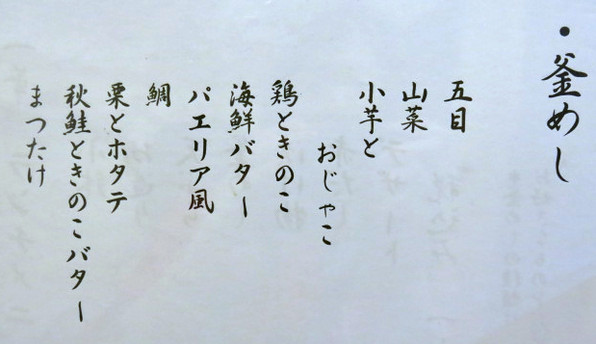 ・釜めし
五目
山菜
小芋と
おじゃこ
鶏ときのこ
海鮮バター
パエリア風
鯛
栗とホタテ
秋鮭ときのこバター
まつたけ